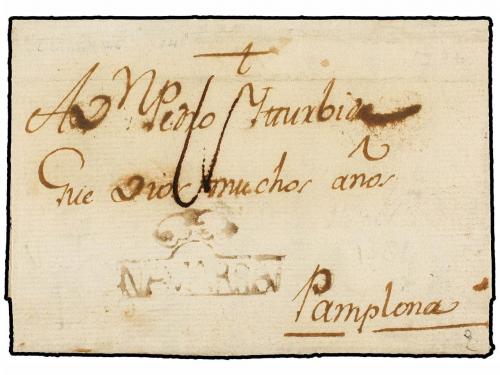 A Dn Pedro Yturbide
Gue Dios muchos años
NAVARRA
Pamplona